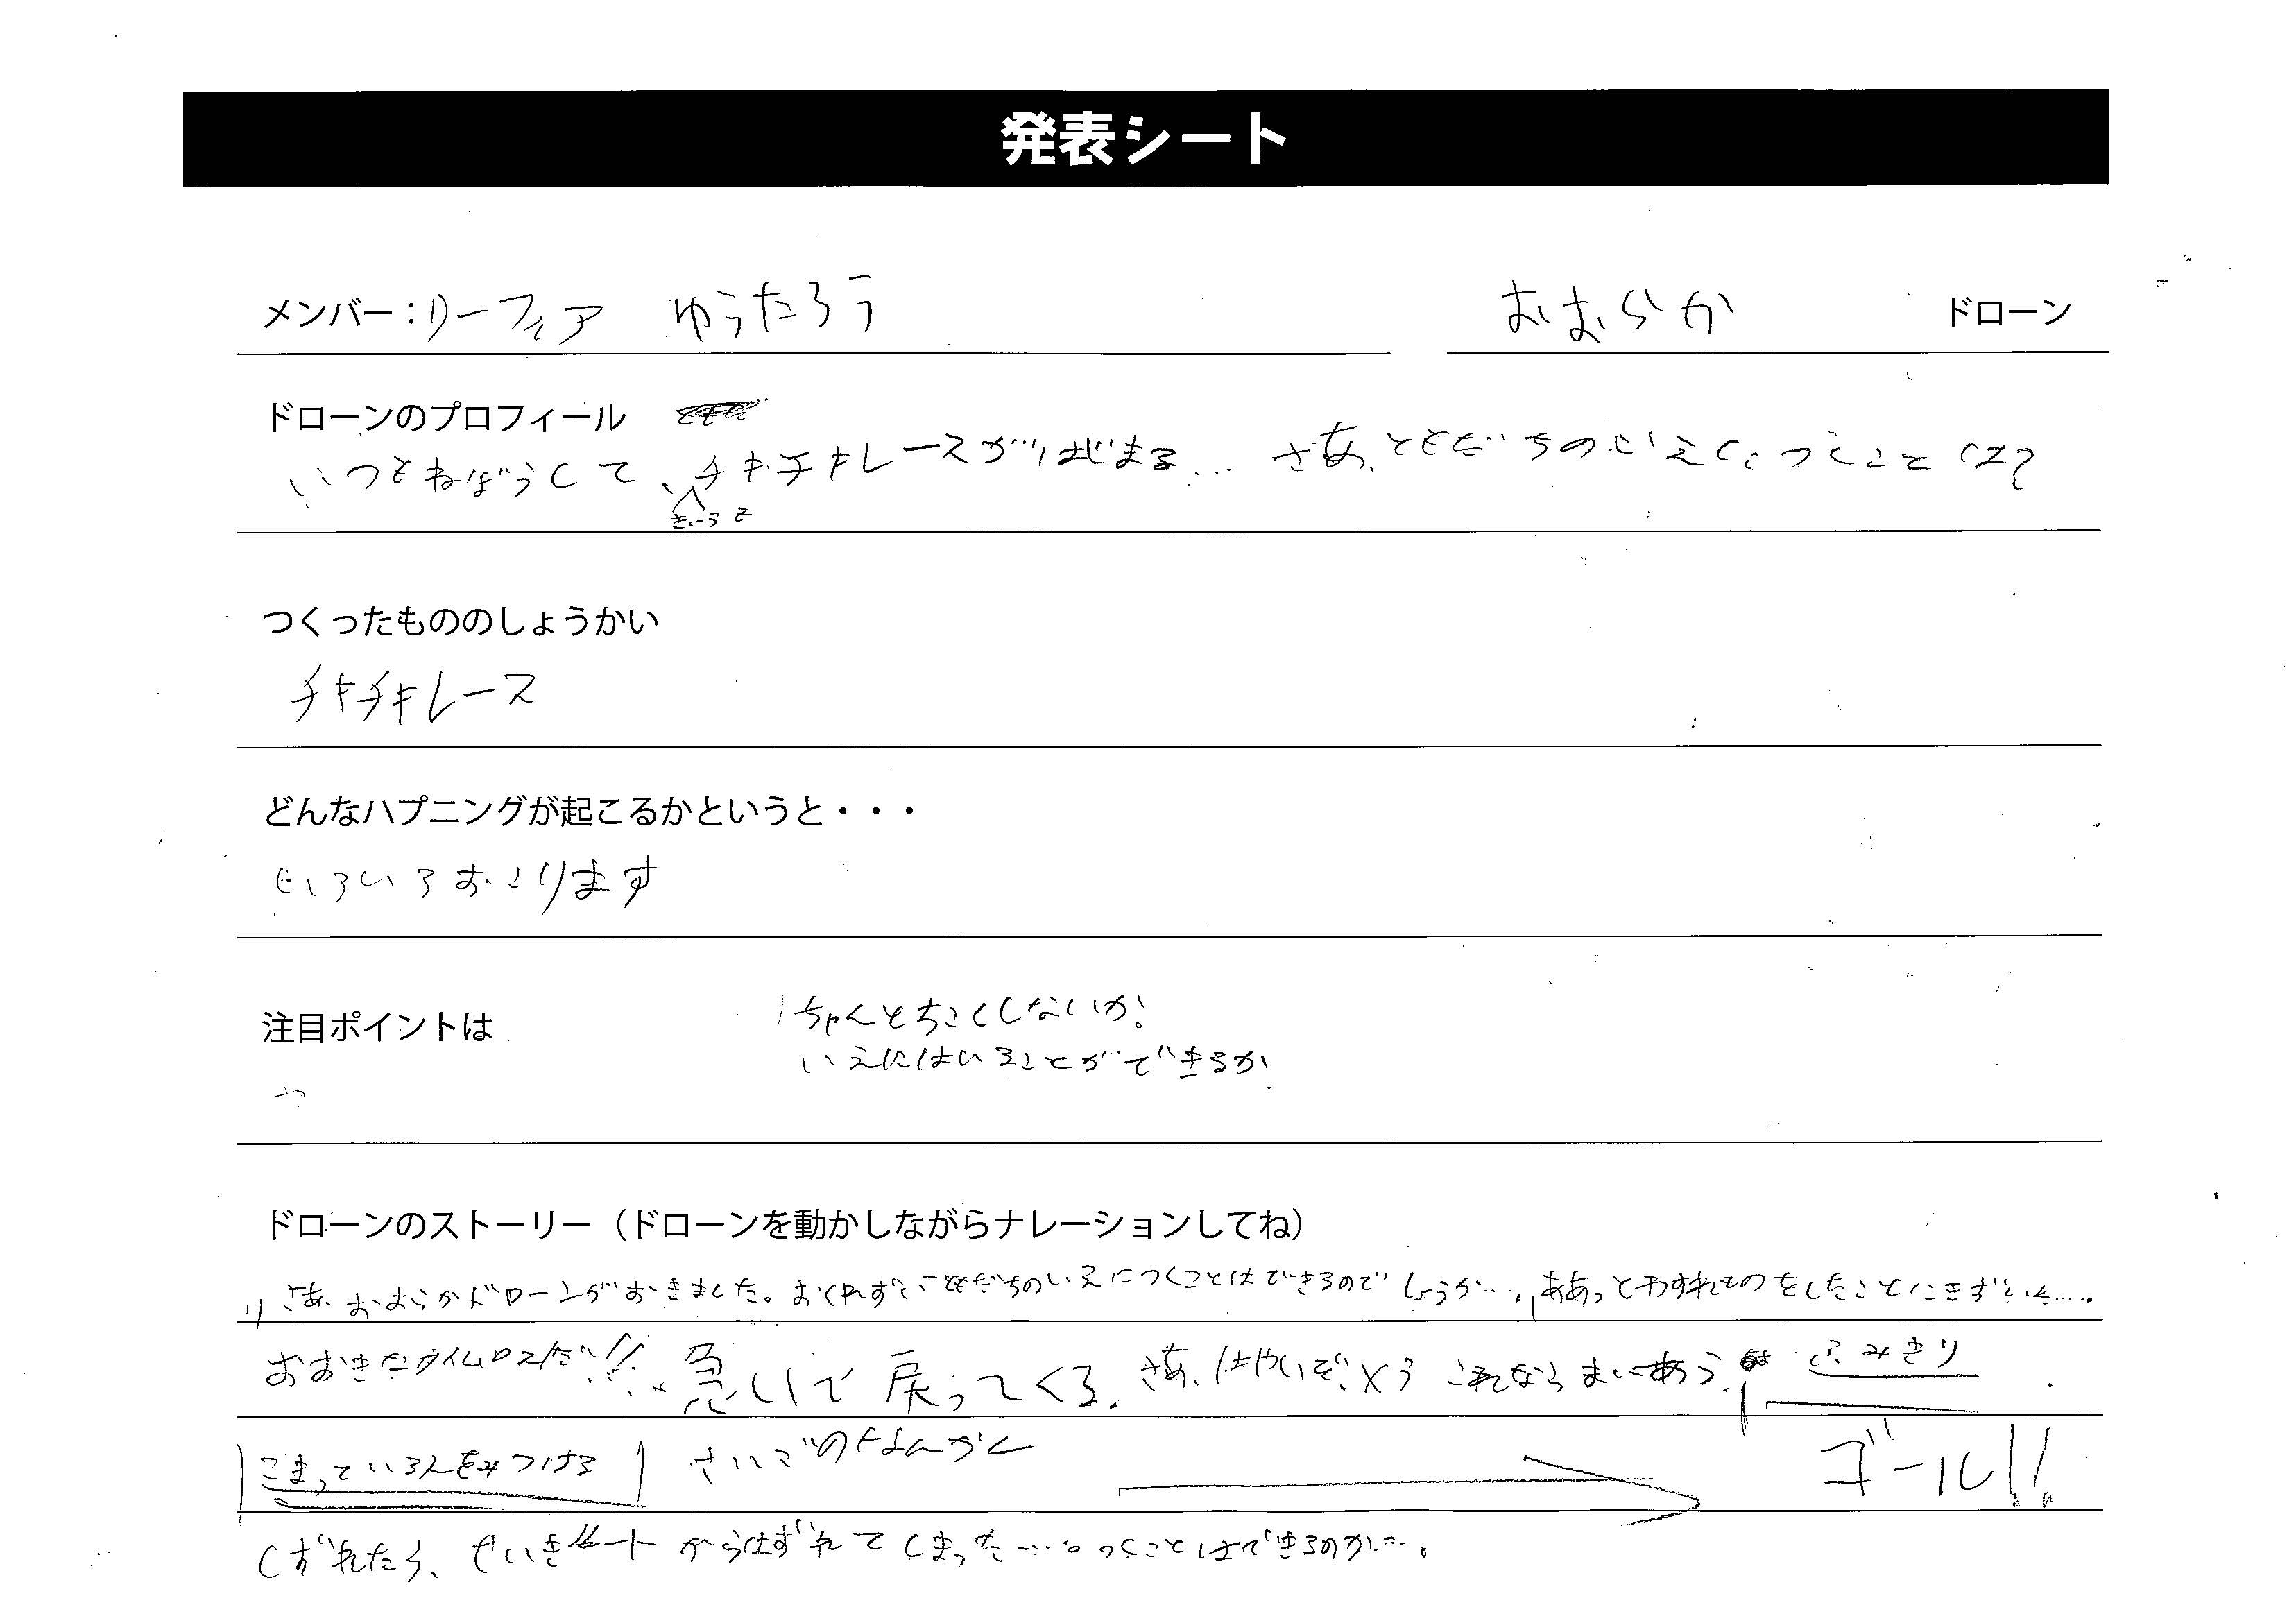 発表シート
メンバー：リーフィア ゆうたろう おおらか ドローン
ドローンのプロフィール
いつもねぼうして、チキチキレースがはじまる… さあ、ともだちのいえにつくことは?
つくったもののしょうかい
チキチキレース
どんなハプニングが起こるかというと・・・
いろいろおこります
注目ポイントは
ちゃんとちこくしないか!
いえにはいることができるか
ドローンのストーリー（ドローンを動かしながらナレーションしてね）
さあ、おおらかドローンがおきました。おくれずにともだちのいえにつくことはできるのでしょうか…。ああっとわすれものをしたことにきずいた…。
おおきなタイムロスだ!! 急いで戻ってくる。さあ、はやいぞ×3 これならまにあう。 ふみきり
こまっている人をみつける さいごの ゴール!!
くずれたら、せいきルートからはずれてしまった…。つくことはできるのか…。